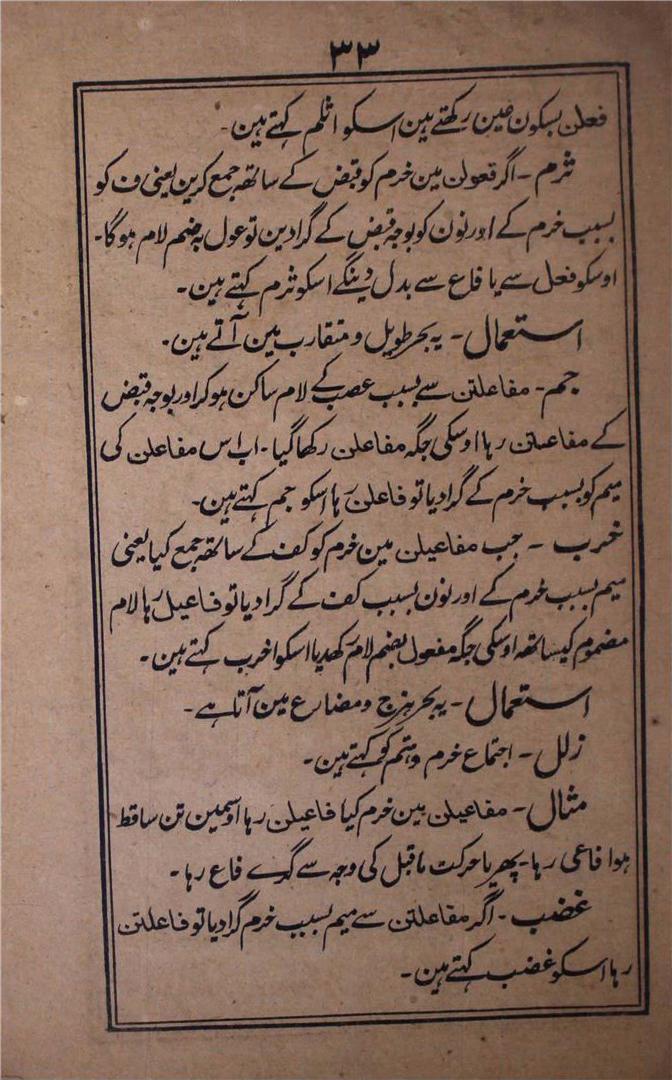 ۳۳
فعلن بسکون عین رکھتے ہین اسکو اثلم کہتے ہین۔
ثرم ۔ اگر فعولن مین خرم کو قبض کے ساتھ جمع کرین یعنی ف کو
بسبب خرم کے اور نون کو بوجہ قبض کے گرا دین تو عول بہ ضم لام ہوگا۔
اوسکو فعل سے یا فاع سے بدل دینگے اسکو ثرم کہتے ہین۔
استعمال ۔ یہ بحر طویل و متقارب مین آتے ہین۔
جمم ۔ مفاعلتن سے بسبب عصب کے لام ساکن ہو کر اور بوجہ قبض
کے مفاعتن رہا اوسکی جگہ مفاعلن رکھا گیا ۔ اب اس مفاعلن کی
میم کو بسبب خرم کے گرا دیا تو فاعلن رہا اسکو جمم کہتے ہین۔
خرب ۔ جب مفاعیلن مین خرم کو کف کے ساتھ جمع کیا یعنی
میم بسبب خرم کے اور نون بسبب کف کے گرا دیا تو فاعیل رہا لام
مضموم کیساتھ اوسکی جگہ مفعول بضم لام رکھدیا اسکو اخرب کہتے ہین۔
استعمال ۔ یہ بحر ہزج و مضارع مین آتا ہے۔
زلل ۔ اجتماع خرم و ہتم کو کہتے ہین۔
مثال ۔ مفاعیلن مین خرم کیا فاعیلن رہا اوسمین تن ساقط
ہوا فاعی رہا۔ پھر یا حرکت ماقبل کی وجہ سے گرے فاع رہا۔
غضب ۔ اگر مفاعلتن سے میم بسبب خرم گرا دیا تو فاعلتن
رہا اسکو غضب کہتے ہین۔